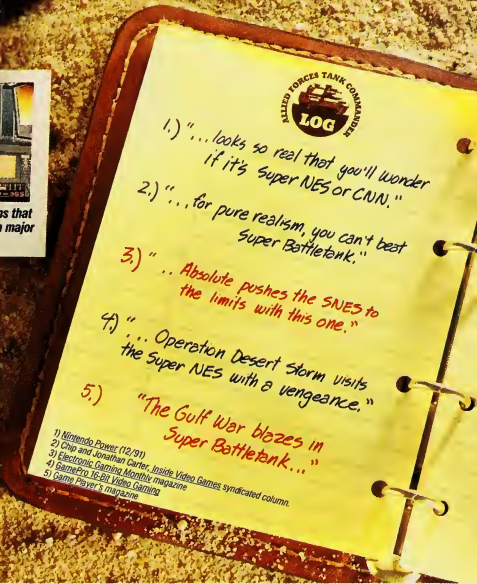 ALLIED FORCES TANK COMMANDER
LOG
1.) "...looks so real that you'll wonder
if it's Super NES or CNN."
2.) "...for pure realism, you can't beat
Super Battletank."
3.) ".. Absolute pushes the SNES to
the limits with this one."
4.) "... Operation Desert Storm visits
the Super NES with a vengeance."
5.) "The Gulf War blazes in
Super Battletank..."
1) Nintendo Power (12/91)
2) Chip and Jonathan Carter, Inside Video Games syndicated column.
3) Electronic Gaming Monthly magazine
4) GamePro 16-Bit Video Gaming
5) Game Player's magazine
ns that
major